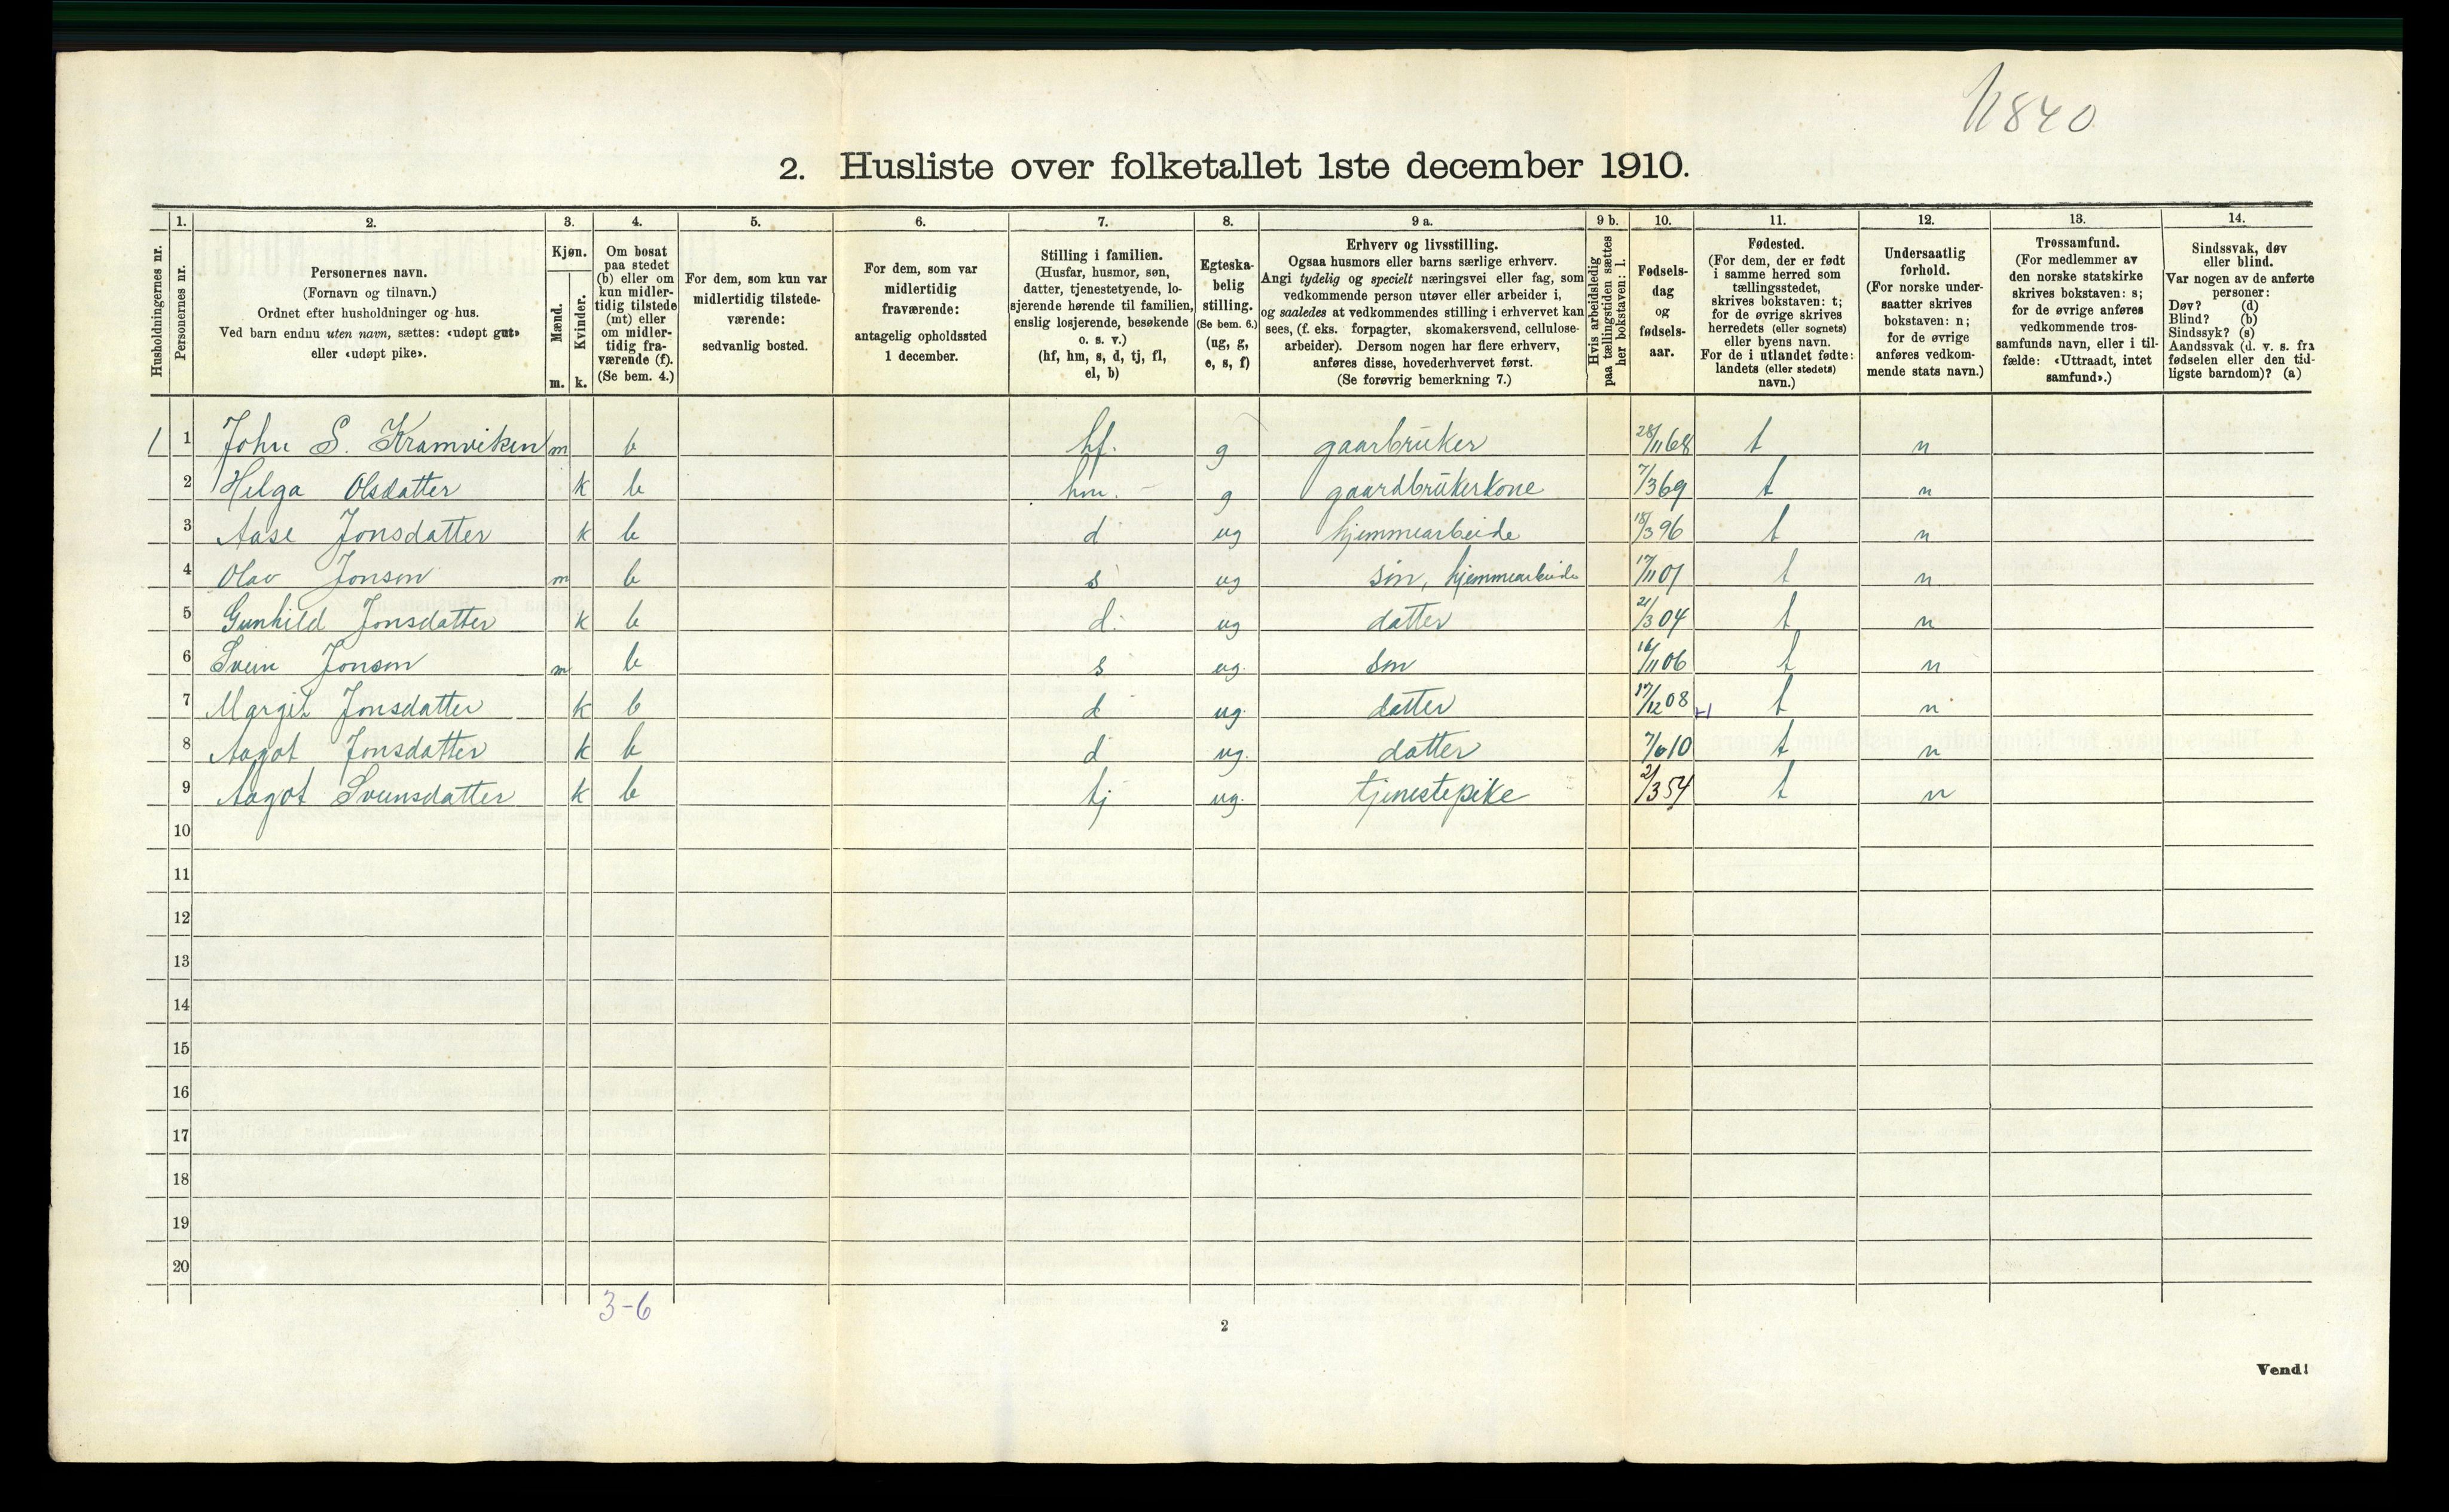 11840
2. Husliste over folketallet 1ste december 1910.
Husholdningernes nr.
1. Personernes nr.
2. Personernes navn. (Fornavn og tilnavn.) Ordnet efter husholdninger og hus. Ved barn endnu uten navn, sættes: «udøpt gut» eller «udøpt pike».
3. Kjøn. Mænd. m. Kvinder. k.
4. Om bosat paa stedet (b) eller om kun midlertidig tilstede (mt) eller om midlertidig fraværende (f). (Se bem. 4.)
5. For dem, som kun var midlertidig tilstedeværende: sedvanlig bosted.
6. For dem, som var midlertidig fraværende: antagelig opholdssted 1 december.
7. Stilling i familien. (Husfar, husmor, søn, datter, tjenestetyende, losjerende hørende til familien, enslig losjerende, besøkende o. s. v.) (hf, hm, s, d, tj, fl, el, b)
8. Egteskabelig stilling. (Se bem. 6.) (ug, g, e, s, f)
9 a. Erhverv og livsstilling. Ogsaa husmors eller barns særlige erhverv. Angi tydelig og specielt næringsvei eller fag, som vedkommende person utøver eller arbeider i, og saaledes at vedkommendes stilling i erhvervet kan sees, (f. eks. forpagter, skomakersvend, cellulosearbeider). Dersom nogen har flere erhverv, anføres disse, hovederhvervet først. (Se forøvrig bemerkning 7.)
9 b. Hvis arbeidsledig paa tællingstiden sættes her bokstaven: l.
10. Fødselsdag og fødselsaar.
11. Fødested. (For dem, der er født i samme herred som tællingsstedet, skrives bokstaven: t; for de øvrige skrives herredets (eller sognets) eller byens navn. For de i utlandet fødte: landets (eller stedets) navn.)
12. Undersaatlig forhold. (For norske undersaatter skrives bokstaven: n; for de øvrige anføres vedkommende stats navn.)
13. Trossamfund. (For medlemmer av den norske statskirke skrives bokstaven: s; for de øvrige anføres vedkommende trossamfunds navn, eller i tilfælde: «Uttraadt, intet samfund».)
14. Sindssvak, døv eller blind. Var nogen av de anførte personer: Døv? (d) Blind? (b) Sindssyk? (s) Aandssvak (d. v. s. fra fødselen eller den tidligste barndom)? (a)
1 1 John S. Kramviken m b hf. g gaarbruker 28/11 68 t n
2 Helga Olsdatter k b hm. g gaardbrukerkone 7/3 69 t n
3 Aase Jonsdatter k b d ug hjemmearbeide 18/3 96 t n
4 Olav Jonson m b s ug søn, hjemmearbeide 17/11 01 t n
5 Gunhild Jonsdatter k b d. ug datter 21/3 04 t n
6 Svein Jonson m b s ug. søn 16/11 06 t n
7 Margit Jonsdatter k b d ug. datter 17/12 08 t n
8 Aagot Jonsdatter k b d ug. datter 7/6 10 t n
9 Aagot Svensdatter k b tj ug. tjenestepike 2/3 54 t n
10
11
12
13
14
15
16
17
18
19
20
3-6
2
Vend!